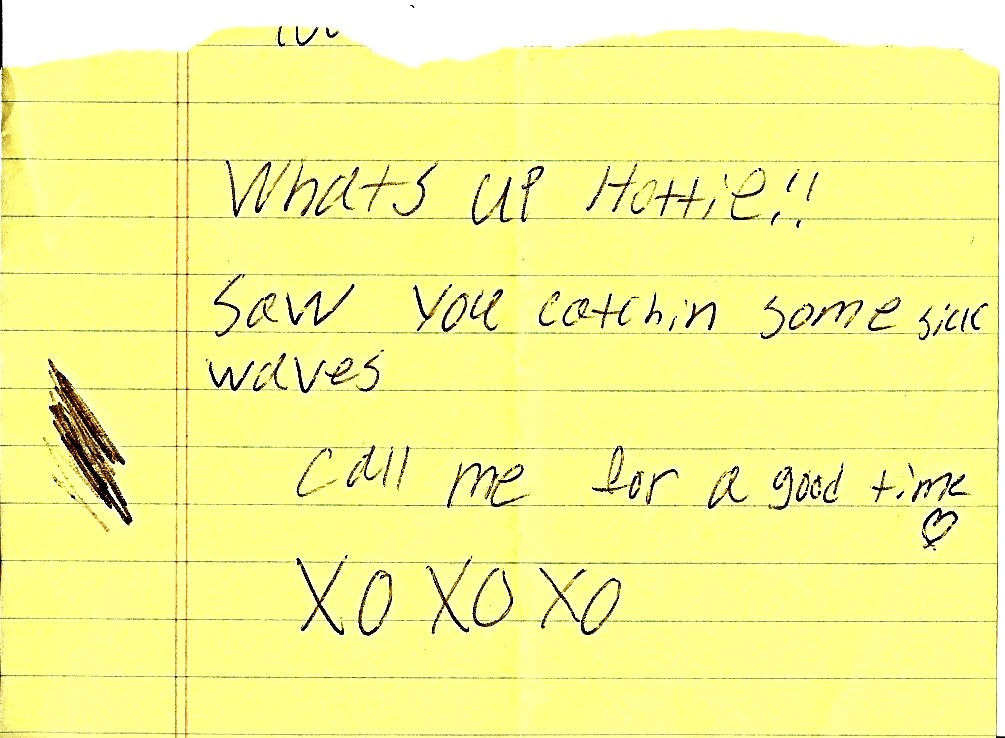 Whats up Hottie!!
Saw you catchin some sick
waves
Call me for a good time
XO XO XO